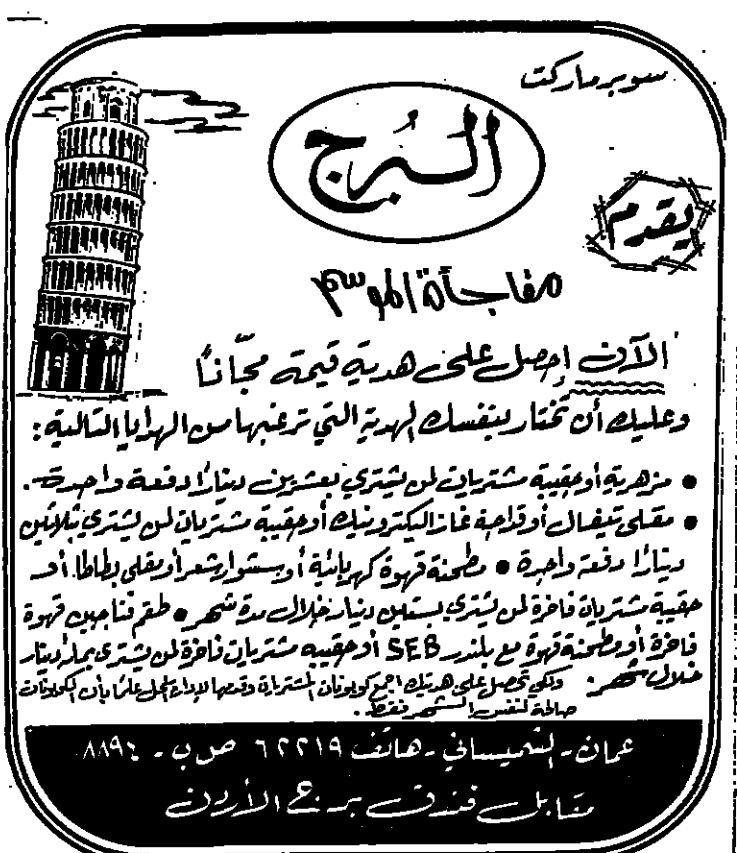 سوبر ماركت
البُرج
يقدم
مفاجأة الموسم
الآن إحصل على هدية قيمة مجّانًا
وعليك أن تختار بنفسك الهدية التي ترغبها من الهدايا التالية:
• مزهرية أو حقيبة مشتريات لمن يشتري بعشرين دينارًا دفعة واحدة.
• مقلى تيفال أو قداحة غاز اليكترونيك أو حقيبة مشتريات لمن يشتري بثلاثين
دينارًا دفعة واحدة • مطحنة قهوة كهربائية أو سشوار شعر أو مقلى بطاطا. أو
حقيبة مشتريات فاخرة لمن يشتري بستين دينار خلال مدة شهر • طقم فناجين قهوة
فاخرة أو مطحنة قهوة مع بلندر SEB أو حقيبة مشتريات فاخرة لمن يشتري بمائة دينار
خلال شهر. ولكي تحصل على هديتك اجمع كوبونات المشتريات وقدمها لإدارة المحل علمًا بأن الكوبونات
صالحة لنفس الشهر فقط.
عمان - الشميساني - هاتف ٦٢٢١٩ ص.ب - ٨٨٩٤
مقابل فندق برج الأردن